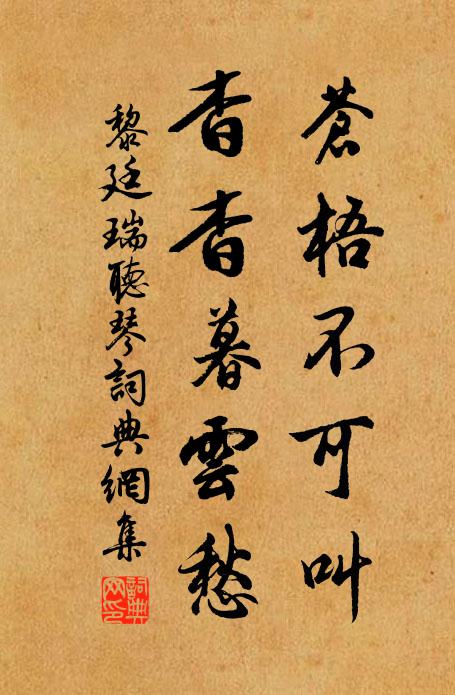 蒼梧不可叫
杳杳暮雲愁
黎廷瑞聽琴詞典網集
詞典网印